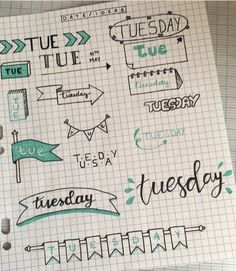 DATE IDEAS
TUE
TUESDAY
TUE
TUE
11TH MAY
Tue
Tuesday
Tuesday
TUE
TUESDAY
tue
TUESDAY
TUESDAY
tuesday
tuesday
TUESDAY